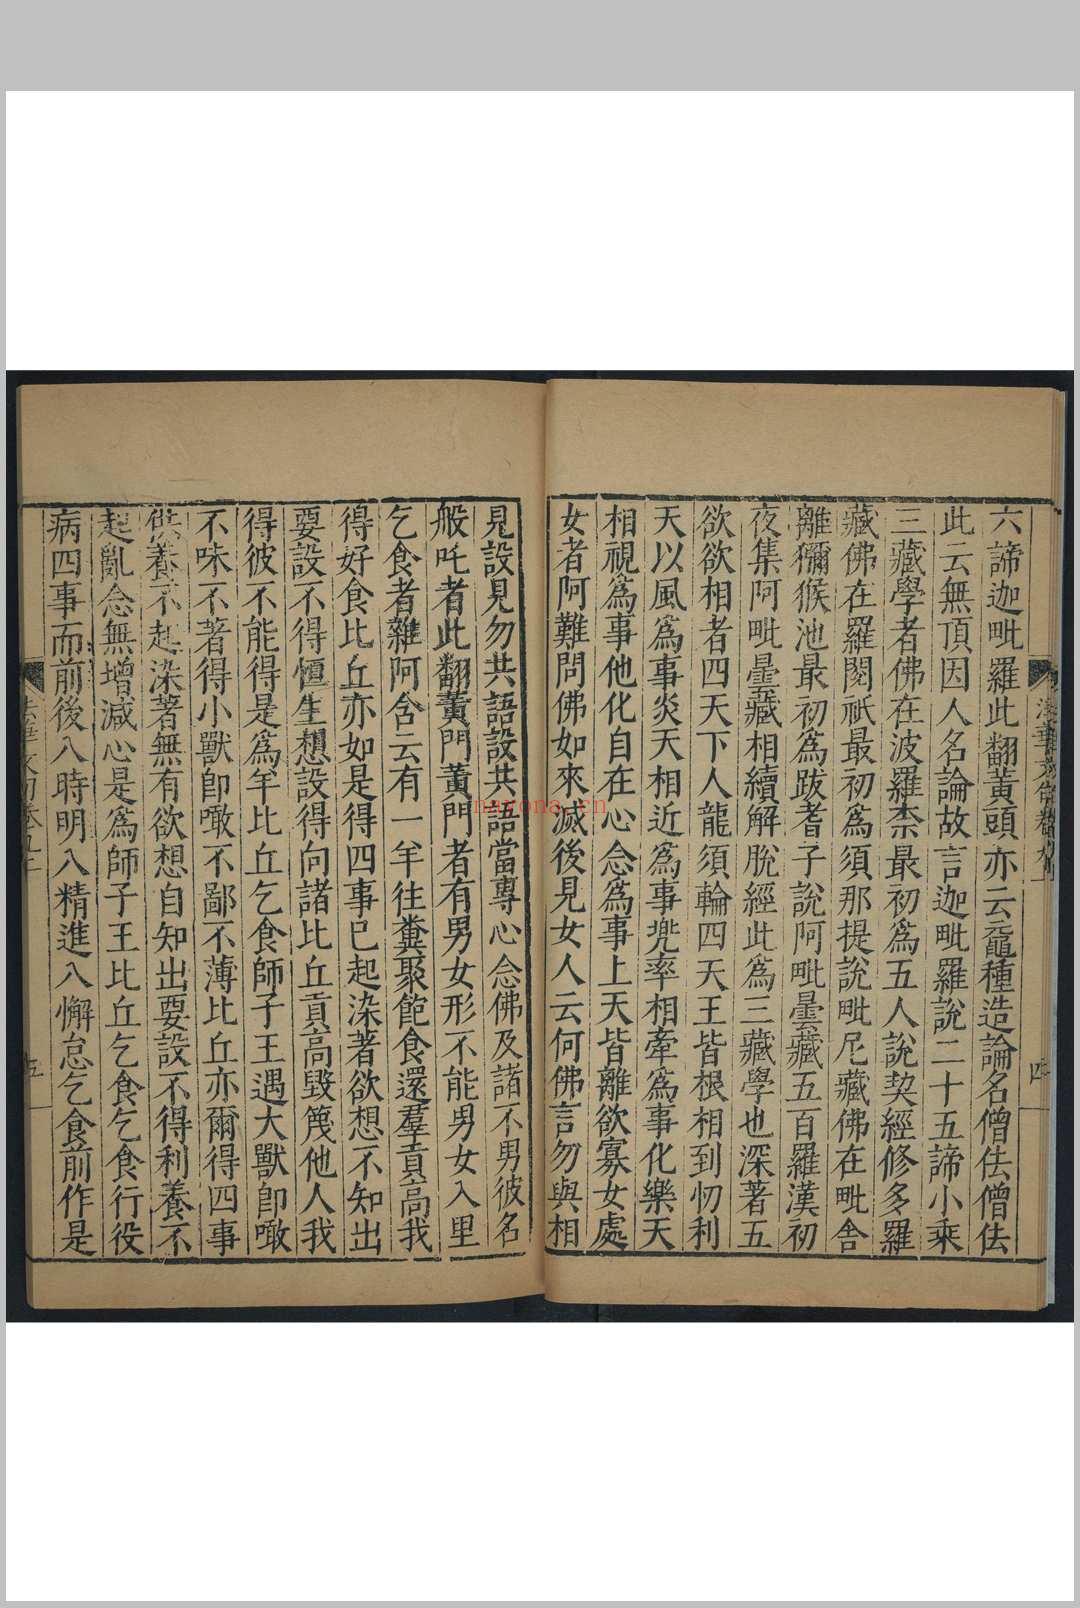 六諦迦毗羅此翻黃頭亦云龜種造論名僧佉僧佉
此云無頂因人名論故言迦毗羅說二十五諦小乘
三藏學者佛在波羅柰最初為五人說契經修多羅
藏佛在羅閱祇最初為須那提說毗尼藏佛在毗舍
離獼猴池最初為跋耆子說阿毗曇藏五百羅漢初
夜集阿毗曇藏相續解脫經此為三藏學也深著五
欲欲相者四天下人龍須輪四天王皆根相到忉利
天以風為事炎天相近為事兠率相牽為事化樂天
相視為事他化自在心念為事上天皆離欲寡女處
女者阿難問佛如來滅後見女人云何佛言勿與相
見設見勿共語設共語當專心念佛及諸不男彼名
般吒者此翻黃門黃門者有男女形不能男女入里
乞食者雜阿含云有一羊往糞聚飽食還羣貢高我
得好食比丘亦如是得四事已起染著欲想不知出
要設不得恒生想設得向諸比丘貢高毀篾他人我
得彼不能得是為羊比丘乞食師子王遇大獸卽噉
不味不著得小獸卽噉不鄙不薄比丘亦爾得四事
供養不起染著無有欲想自知出要設不得利養不
起亂念無增減心是為師子王比丘乞食乞食行役
病四事而前後八時明入精進入懈怠乞食前作是
法華文句卷九上
四
五
nayona.cn